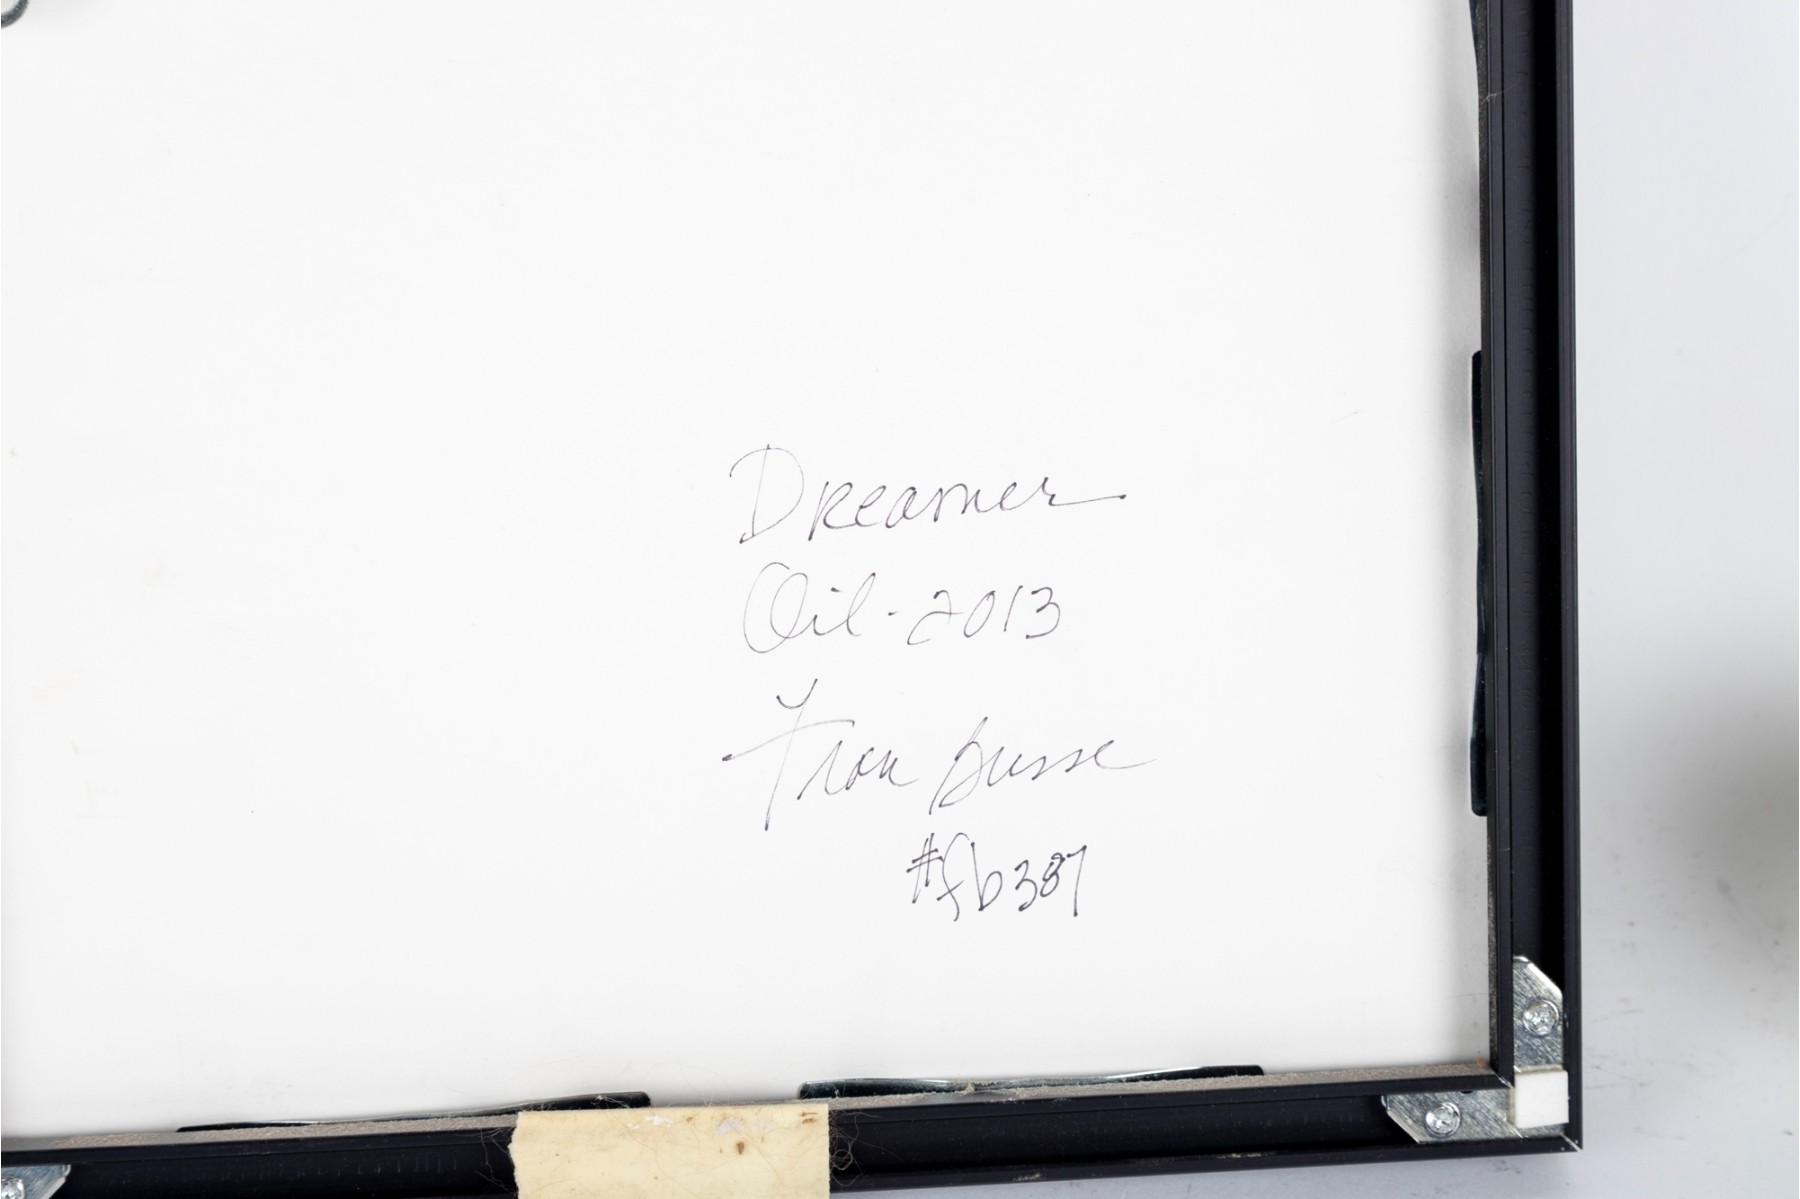 Dreamer
Oil-2013
Fran Busse
#fb387